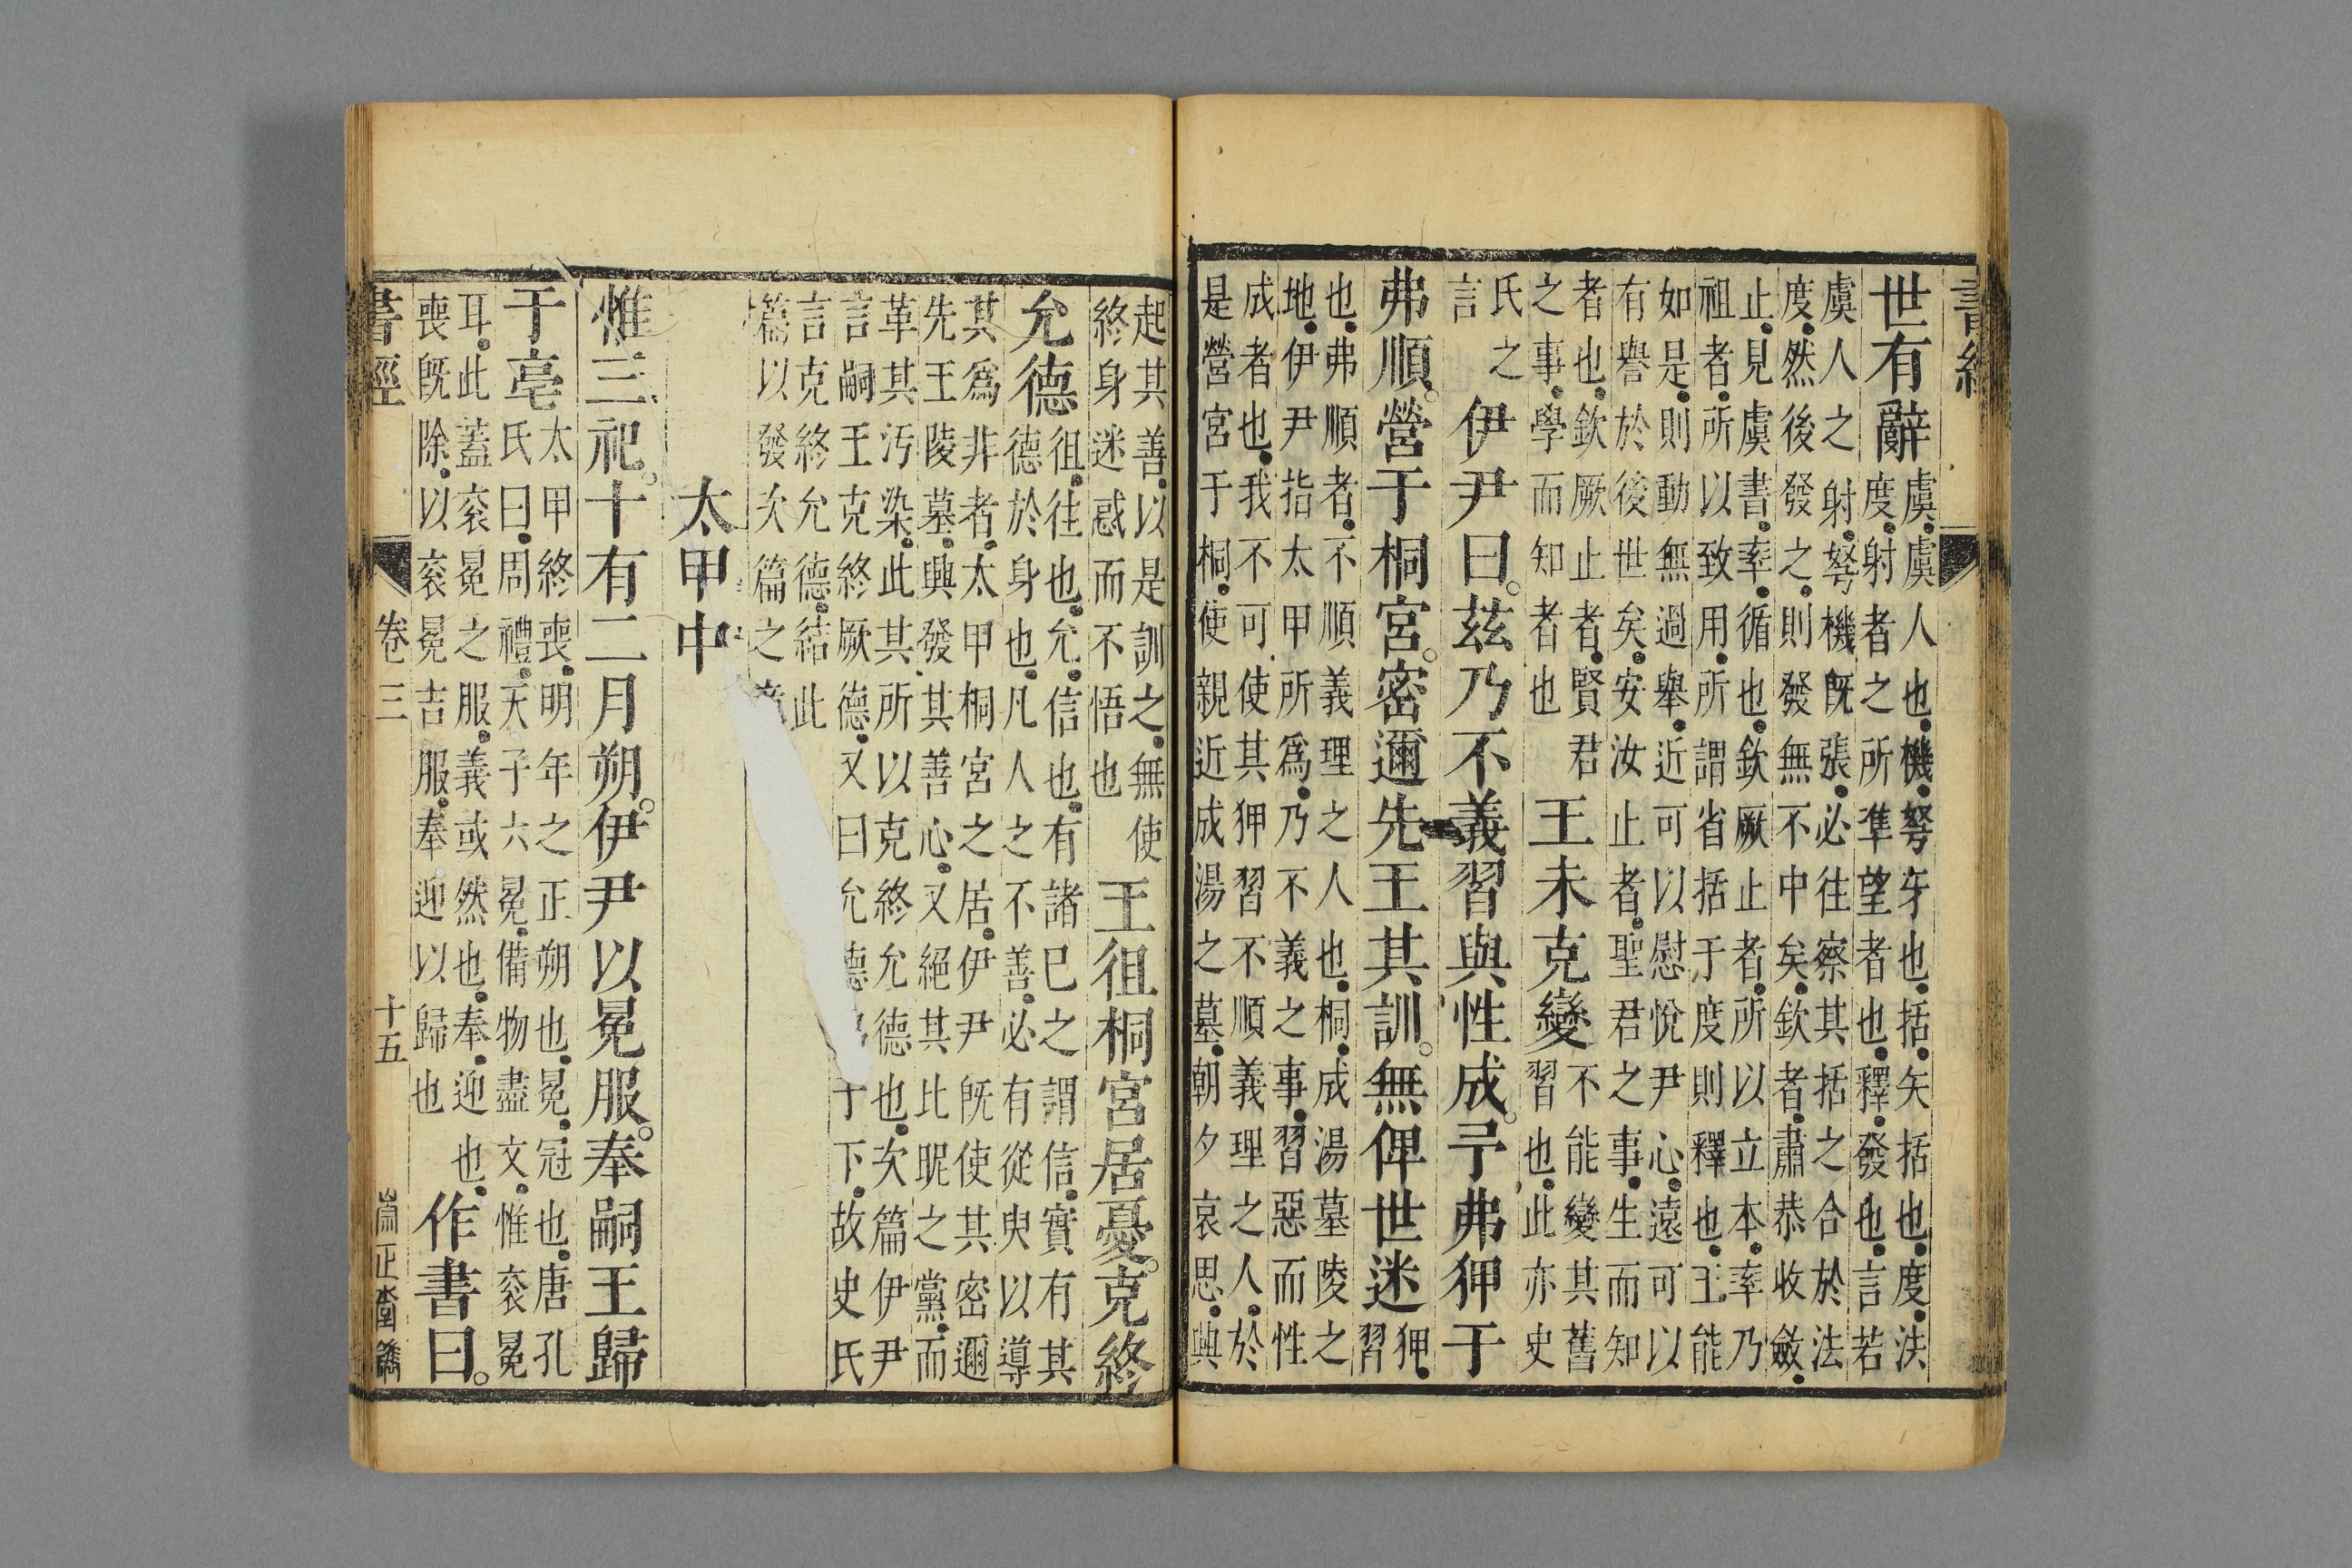 書經
世有辭
虞虞人也機弩牙也括矢括也度法
度射者之所準望者也釋發也言若
虞人之射弩機既張必往察其括之合於法
度然後發之則發無不中矣欽者肅恭收斂
止見虞書率循也欽厥止者所以立本率乃
祖者所以致用所謂省括于度則釋也王能
如是則動無過舉近可以慰悅尹心遠可以
有譽於後世矣安汝止者聖君之事生而知
者也欽厥止者賢君
之事學而知者也
王未克變
不能變其舊
習也此亦史
氏之
言
伊尹曰茲乃不義習與性成予弗狎于
弗順營于桐宮密邇先王其訓無俾世迷
狎
習
也弗順者不順義理之人也桐成湯墓陵之
地伊尹指太甲所爲乃不義之事習惡而性
成者也我不可使其狎習不順義理之人於
是營宮于桐使親近成湯之墓朝夕哀思興
起其善以是訓之無使
終身迷惑而不悟也
王徂桐宮居憂克終
允德
徂往也允信也有諸己之謂信實有其
德於身也凡人之不善必有從臾以導
其爲非者太甲桐宮之居伊尹既使其密邇
先王陵墓興發其善心又絕其比昵之黨而
革其污染此其所以克終允德也次篇伊尹
言嗣王克終厥德又曰允德于下故史氏
言克終允德結此
篇以發次篇之
太甲中
惟三祀十有二月朔伊尹以冕服奉嗣王歸
于亳
太甲終喪明年之正朔也冕冠也唐孔
氏曰周禮天子六冕備物盡文惟袞冕
耳此蓋袞冕之服義或然也奉迎也
喪既除以袞冕吉服奉迎以歸也
作書曰
書經
卷三
十五
崇正堂鐫